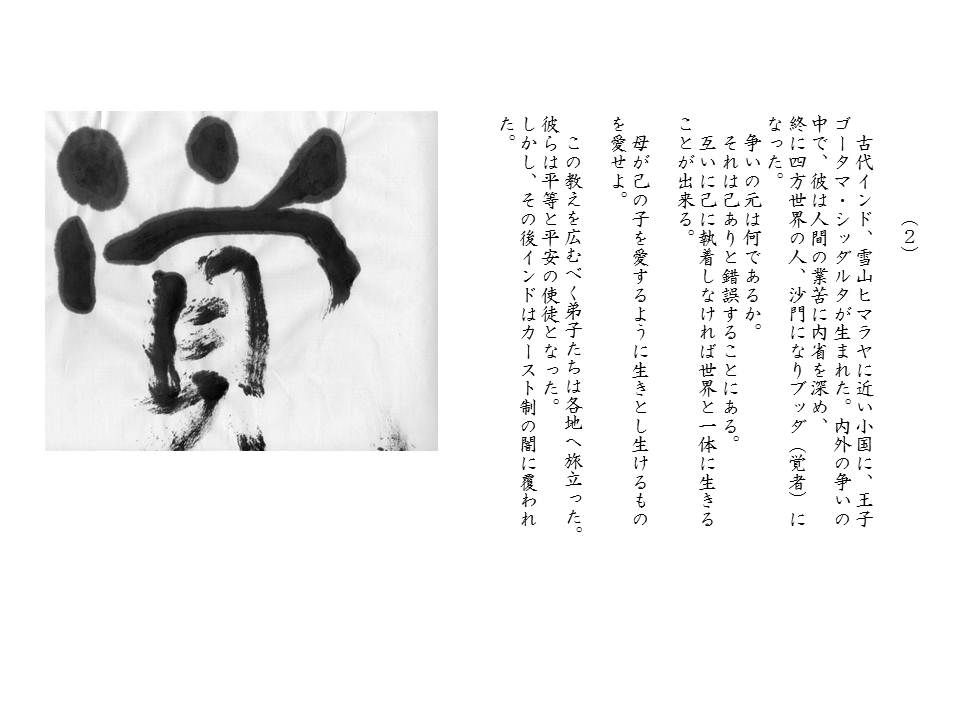 （２）
古代インド、雪山ヒマラヤに近い小国に、王子
ゴータマ・シッダルタが生まれた。内外の争いの
中で、彼は人間の業苦に内省を深め、
終に四方世界の人、沙門になりブッダ（覚者）に
なった。
争いの元は何であるか。
それは己ありと錯誤することにある。
互いに己に執着しなければ世界と一体に生きる
ことが出来る。
母が己の子を愛するように生きとし生けるもの
を愛せよ。
この教えを広むべく弟子たちは各地へ旅立った。
彼らは平等と平安の使徒となった。
しかし、その後インドはカースト制の闇に覆われ
た。
覚